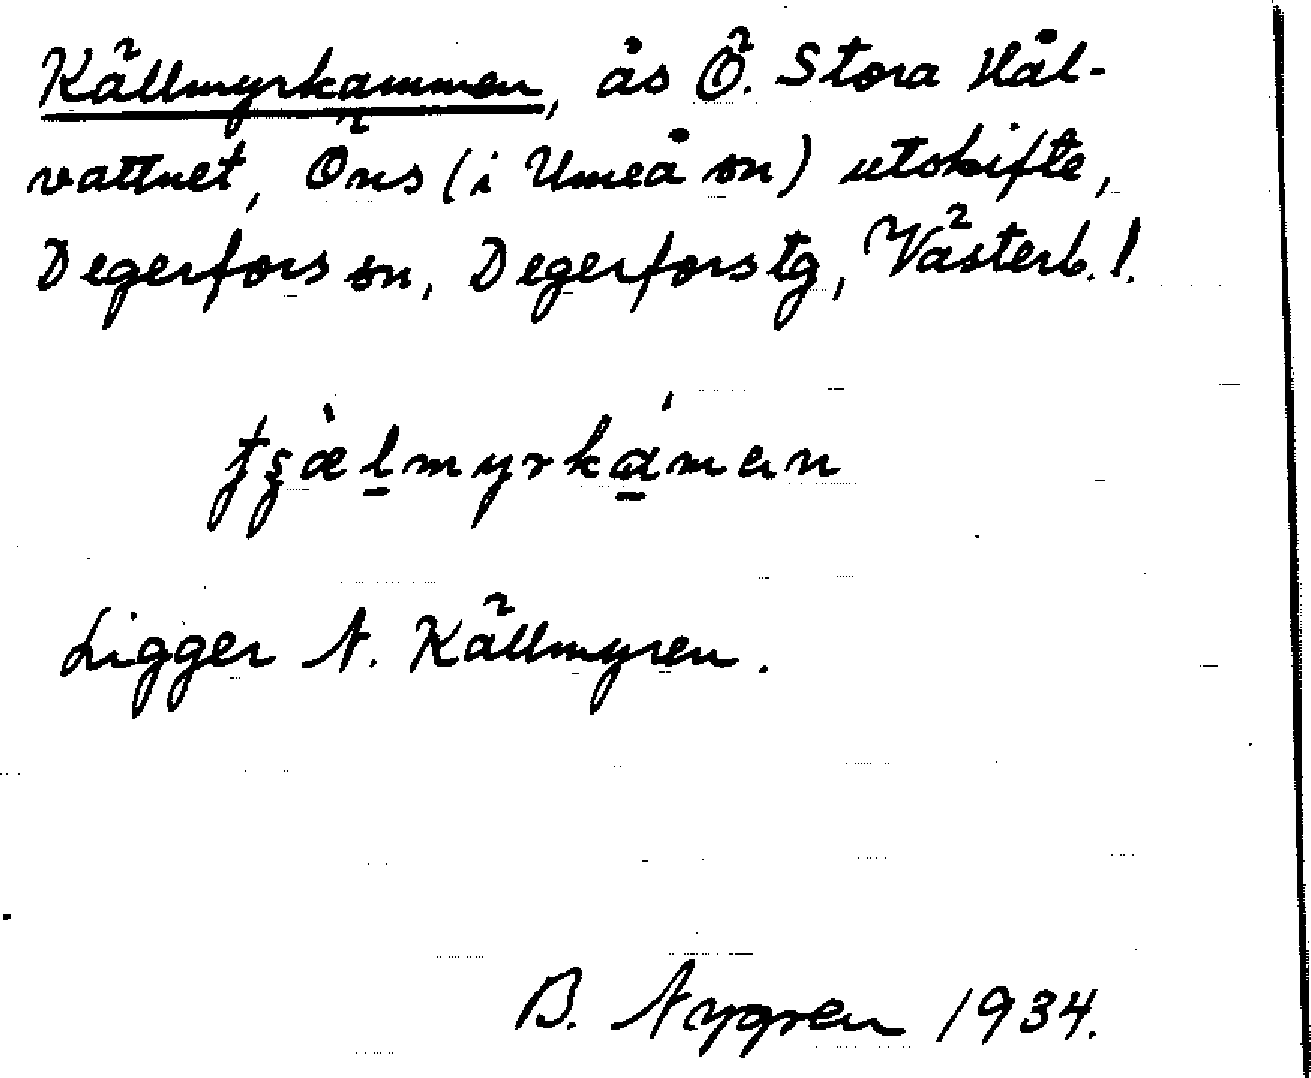 Källmyrkammen, ås Ö. Stora Hål-
vattnet, Öns (i Umeå sn) utskifte,
Degerfors sn, Degerfors tg, Västerb. l.
tʂæ̀lmyrkámen
Ligger N. Källmyren.
B. Nygren 1934.